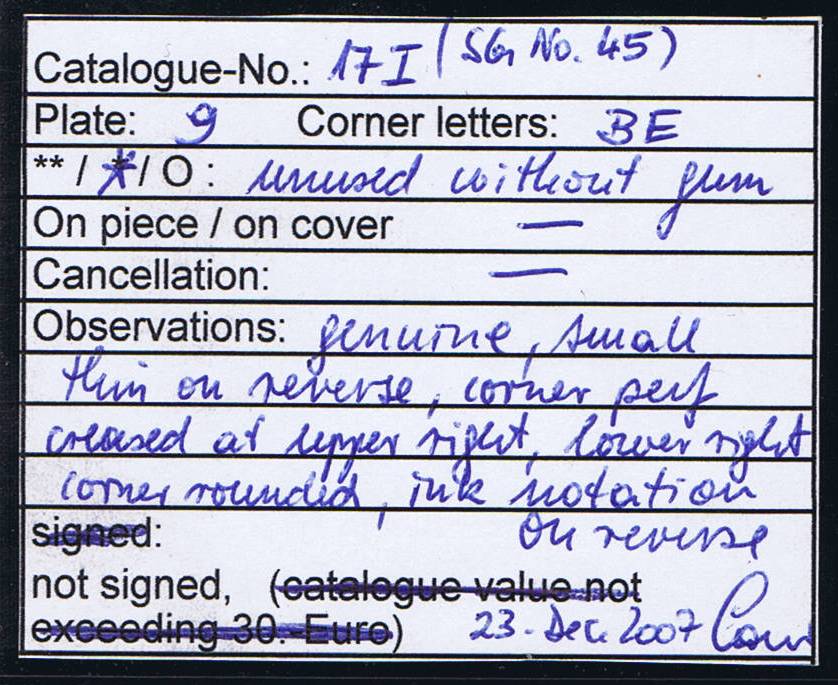 Catalogue-No.: 17 I (SG No. 45)
Plate: 9 Corner letters: BE
** / * / O : unused without gum
On piece / on cover —
Cancellation: —
Observations: genuine, small
thin on reverse, corner perf
creased at upper right, lower right
corner rounded, ink notation
signed: on reverse
not signed, (catalogue value not
exceeding 30.-Euro) 23. Dec. 2007